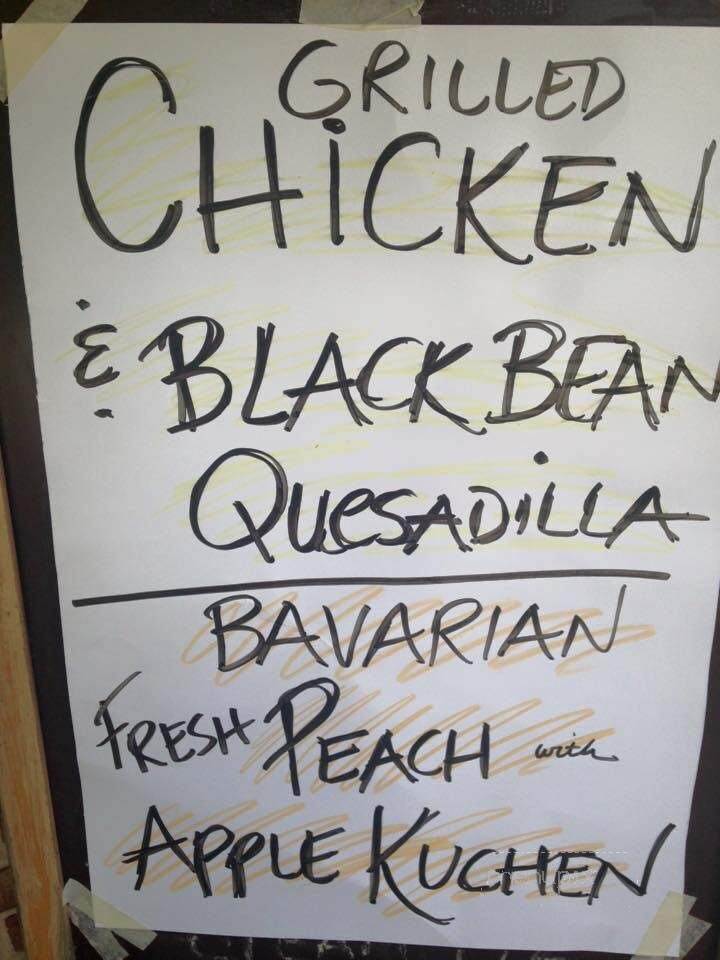 GRILLED
CHICKEN
& BLACK BEAN
QUESADILLA
BAVARIAN
FRESH PEACH with
APPLE KUCHEN